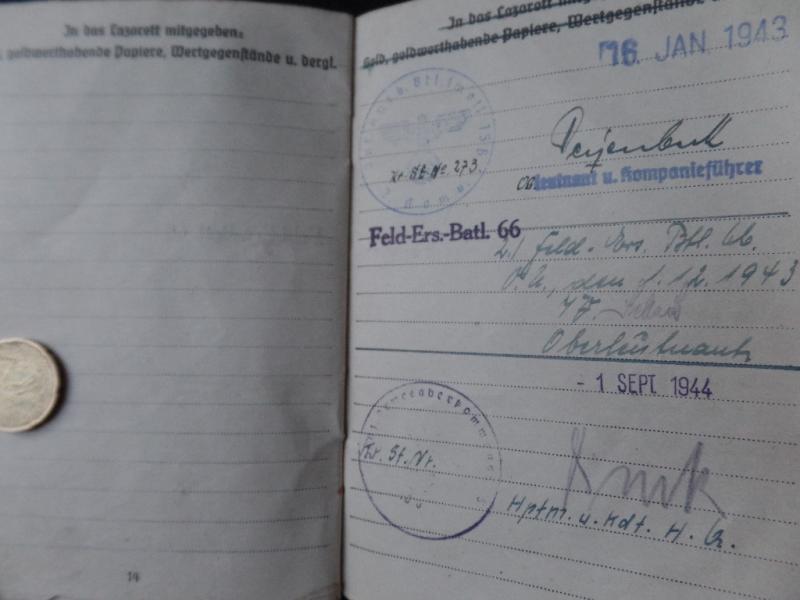 In das Lazarett mitgegeben:
goldwerthabende Papiere, Wertgegenstände u. dergl.
14
In das Lazarett
Geld, goldwerthabende Papiere, Wertgegenstände
16. JAN 1943
Kr. St. Nr. 273.
Leutnant u. Kompanieführer
Feld-Ers.-Batl. 66
2./ Feld-Ers. Btl. 66.
O.U., den 1.12.1943
Oberleutnant
- 1. SEPT. 1944
Armeeoberkommando
Kr. St. Nr.
Hptm. u. Kdt. H. Q.